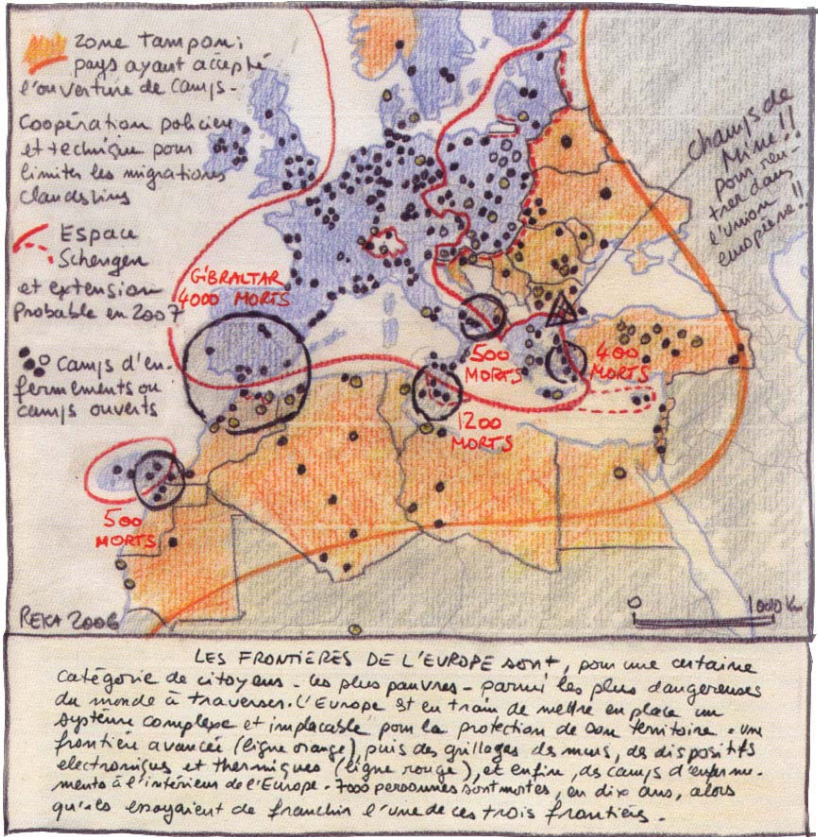 zone Tampon:
pays ayant accepté
l'ouverture de camps.
Coopération policière
et technique pour
limiter les migrations
clandestines
Espace
Schengen
et extension
probable en 2007
Camps d'en-
fermements ou
camps ouverts
champs de
Mine!!
pour ren-
trer dans
l'Union
européenne!!
GIBRALTAR
4000 MORTS
500
MORTS
400
MORTS
1200
MORTS
500
MORTS
REKA 2006
0 1000 Km
LES FRONTIÈRES DE L'EUROPE sont, pour une certaine
catégorie de citoyens - les plus pauvres - parmi les plus dangereuses
du monde à traverser. L'Europe est en train de mettre en place un
système complexe et implacable pour la protection de son territoire. une
frontière avancée (ligne orange), puis des grillages des murs, des dispositifs
electroniques et thermiques (ligne rouge), et enfin, des camps d'enferme-
ments à l'intérieur de l'Europe. 7000 personnes sont mortes, en dix ans, alors
qu'ils essayaient de franchir l'une de ces trois frontières.